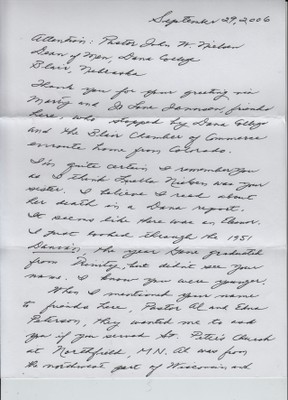 September 29, 2006
Attention: Pastor John W. Nielsen
Dean of Men, Dana College
Blair, Nebraska
Thank you for your greeting via
Marty and Jo Jannsen, friends
here, who stopped by Dana College
and the Blair Chamber of Commerce
enroute home from Colorado.
I'm quite certain I remember you
as I think Luella Nielsen was your
sister. I believe I read about
her death in a Dana report.
It seems like there was an
I just looked through the 1951
Danian, the year Gene graduated
from Trinity, but didn't see your
name. I know you were younger.
When I mentioned your name
to friends here, Pastor Al and Edna
Peterson, they wanted me to ask
you if you served St. Peter's Church
at Northfield, MN. Al was from
the northwest part of Wisconsin and